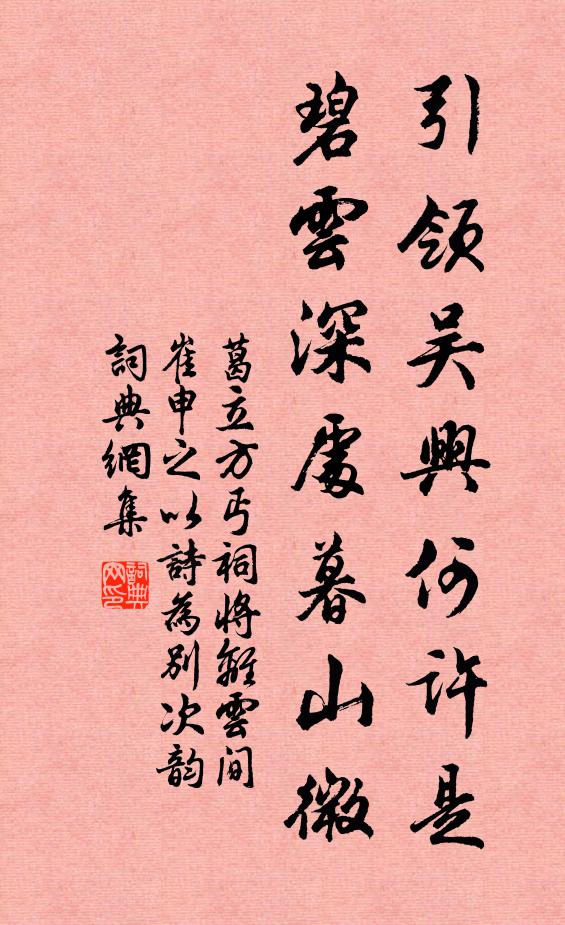 引領吳興何許是
碧雲深處暮山微
葛立方丐祠將離雲间
崔申之以詩為别次韵
詞典網集
詞典网印